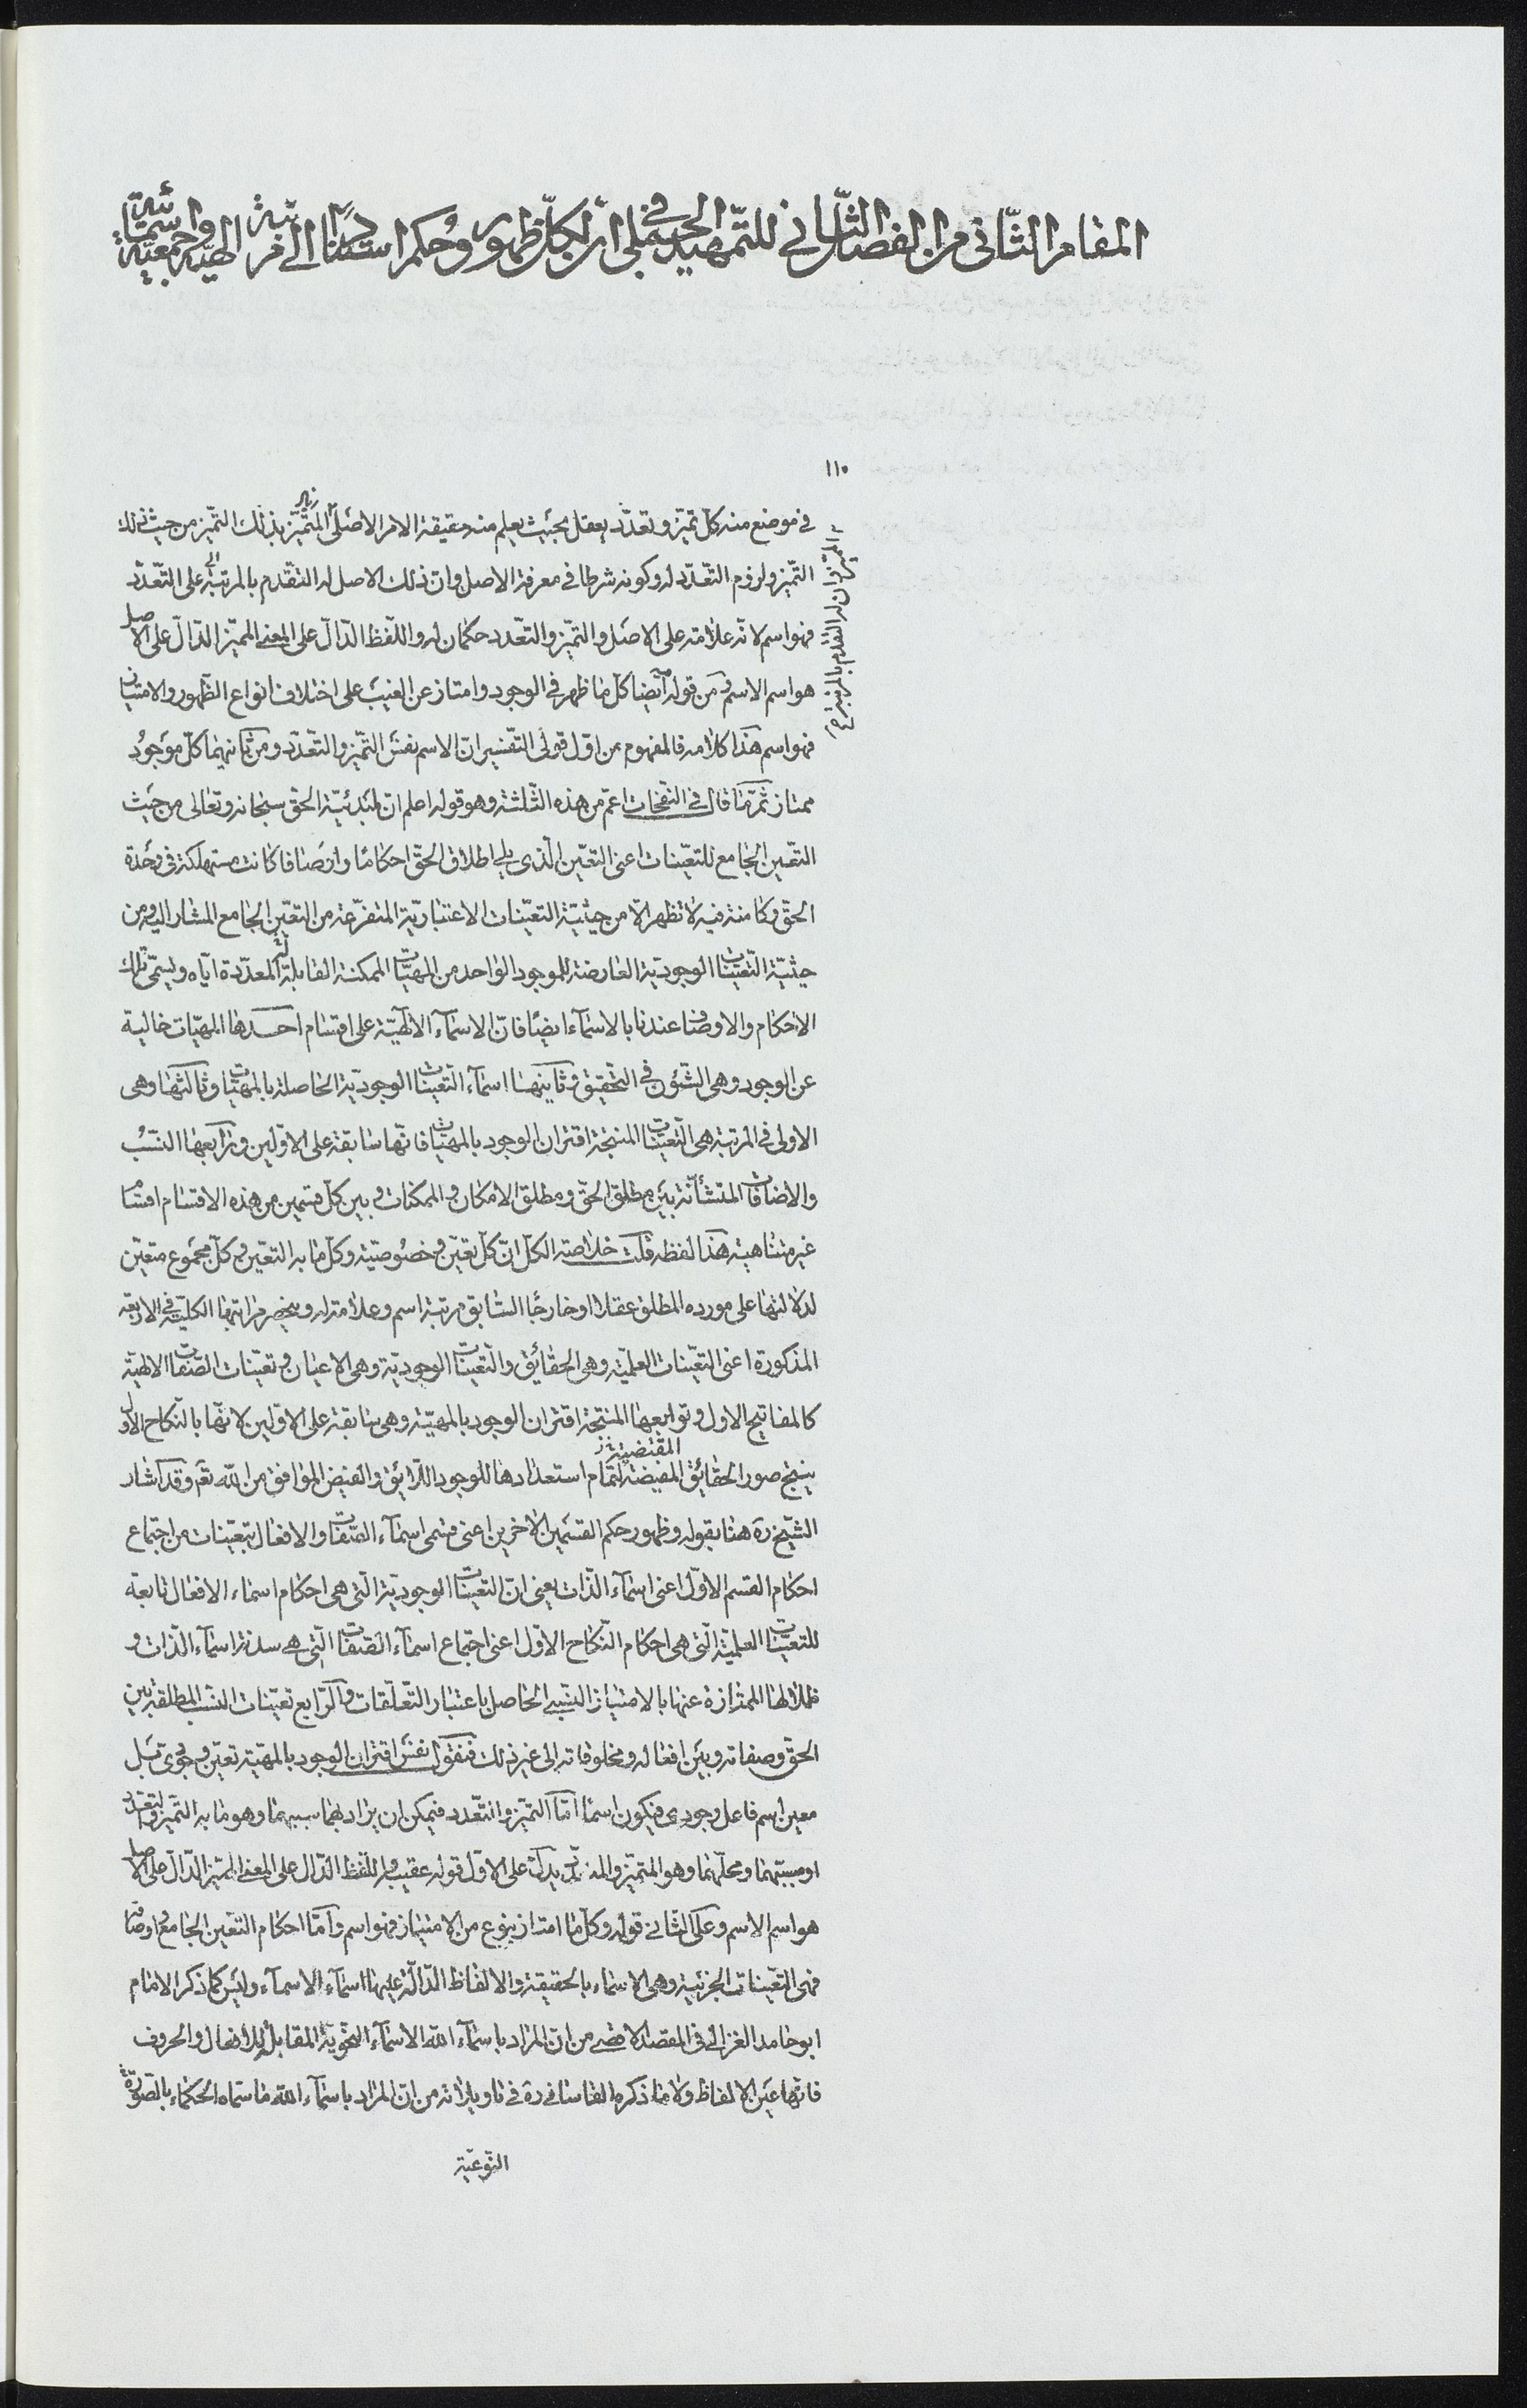 المقام الثّانى من الفصل الثّانى للتّمهيد الجملى فى ان لكلّ ظهور وحكم استنادًا الى مرتبة الهيّة جمعيّة واسمائيّة
١١٠
فى موضع منه كلّ تميّز وتعدّد يعقل بحيث يعلم منه حقيقة الامر الاصلىّ المتميّز بذلك التميّز من حيث ذلك
التّميز ولزوم التّعدّد له وكونه شرطا فى معرفة الاصل وان ذلك الاصل له التقدّم بالمرتبة على التّعدّد
فهو اسم لانّه علامة على الاصل والتميّز والتعّدد حكمان له واللّفظ الدّالّ على المعنى المميّز الدّالّ على الاصل
هو اسم الاسم ومن قوله ايضا كلّ ما ظهر فى الوجود وامتاز عن الغيب على اختلاف انواع الظّهور والامتياز
فهو اسم هذا كلامه فالمفهوم من اوّل قولى التّفسير انّ الاسم نفس التّميّز والتّعدّد ومن ثانيهما كلّ موجود
ممتاز ثمّ ما قال فى النّفحات اعمّ من هذه الثّلثة وهو قوله اعلم ان لمبدئيّة الحق سبحانه وتعالى من حيث
التعّين الجامع للتعيّنات اعنى التعيّن الّذى يلى اطلاق الحقّ احكامًا واوصافا كانت مستهلكة فى وحدة
الحقّ وكامنة فيه لا تظهر الّا من حيثيّة التعيّنات الاعتباريّة المتفرّعة من التعيّن الجامع المشار اليه ومن
حيثيّة التّعيّنات الوجوديّة العارضة للموجود الواحد من المهيّات الممكنة القابلة له المعدّدة ايّاه وليسمّى تلك
الاحكام والاوصاف عندنا بالاسماء ايضًا فانّ الاسماء الالهيّة على اقسام احدها المهيّات خالية
عن الوجود وهى الشّئون فى التّحقيق وثانيها اسماء التّعيّنات الوجوديّة الحاصلة بالمهيّات وثالثها وهى
الاولى فى المرتبة هى التّعيّنات المنتجة اقتران الوجود بالمهيّات فانّها سابقة على الاوّلين ورابعها النّسبُ
والاضافات المتنشأئة بين مطلق الحقّ ومطلق الامكان والممكنات وبين كلّ قسمين من هذه الاقسام اقسامًا
غير متناهية هذا لفظه قلت خلاصة الكلّ انّ كلّ تعيّن وخصُوصيّة وكلّ ما به التعيّن وكلّ مجموع متعيّن
لدلالتها على مورده المطلق عقلا او خارجًا السّابق مرتبة اسم وعلامة له وينحصر مراتبها الكليّة فى الاربعة
المذكورة اعنى التعيّنات العلميّة وهى الحقائق والتّعيّنات الوجوديّة وهى الاعيان وتعيّنات الصّفات الالهيّة
كالمفاتيح الاول وتوابعها المنتجة اقتران الوجود بالمهيّة وهى سابقة على الاوّلين لانّها بالنّكاح الاوّل
ينتج صور الحقائق المفيضة المقتضية لتمام استعدادها للوجود اللّايق والفيض الموافق من اللّه تعّم وقد اشار
الشّيخ ره هنا بقوله وظهور حكم القسمين الاخرين اعنى قسمى اسماء الصّفات والافعال بتعيّنات من اجتماع
احكام القسم الاوّل اعنى اسماء الذّات يعنى انّ التّعيّنات الوجوديّة الّتى هى احكام اسماء الافعال تابعة
للتعيّنات العلميّة الّتى هى احكام النّكاح الاوّل اعنى اجتماع اسماء الصّفات الّتى هى سدنة اسماء الذّات و
ظلالها الممتازة عنها بالامتياز النّسبى الحاصل باعتبار التّعلّقات والرّابع تعيّنات النّسب المطلقة بين
الحقّ وصفاته وبين افعاله ومخلوقاته الى غير ذلك فنقول نفس اقتران الوجود بالمهيّة تعيّن وجودىّ قبل
معين اسم فاعل وجودى فيكون اسمًا امّا التميّز والتّعدد فيمكن ان يراد بهما سببهما وهو ما به التّميز والتعدّد
او مسبّبهما ومحلّهما وهو المتميّز والمتعدّد يدلّ على الاوّل قوله عقيبه واللّفظ الدّالّ على المعنى المميّز الدّالّ على الاصل
هو اسم الاسم وعلى الثّانى قوله وكلّ ما امتاز بنوع من الامتياز فهو اسم وامّا احكام التعّين الجامع واوصافه
فهى التعيّنات الجزئية وهى الاسماء بالحقيقة والالفاظ الدّالّة عليها اسماء الاسماء وليس كما ذكر الامام
ابو حامد الغزالى فى المقصد الاقصى من انّ المراد باسماء اللّه الاسماء النّحويّة المقابلة للافعال والحروف
فانّها عين الالفاظ ولا ما ذكره القاسانى ره فى تاويلاته من انّ المراد باسماء اللّه ما سمّاه الحكماء بالصّورة
النّوعيّة